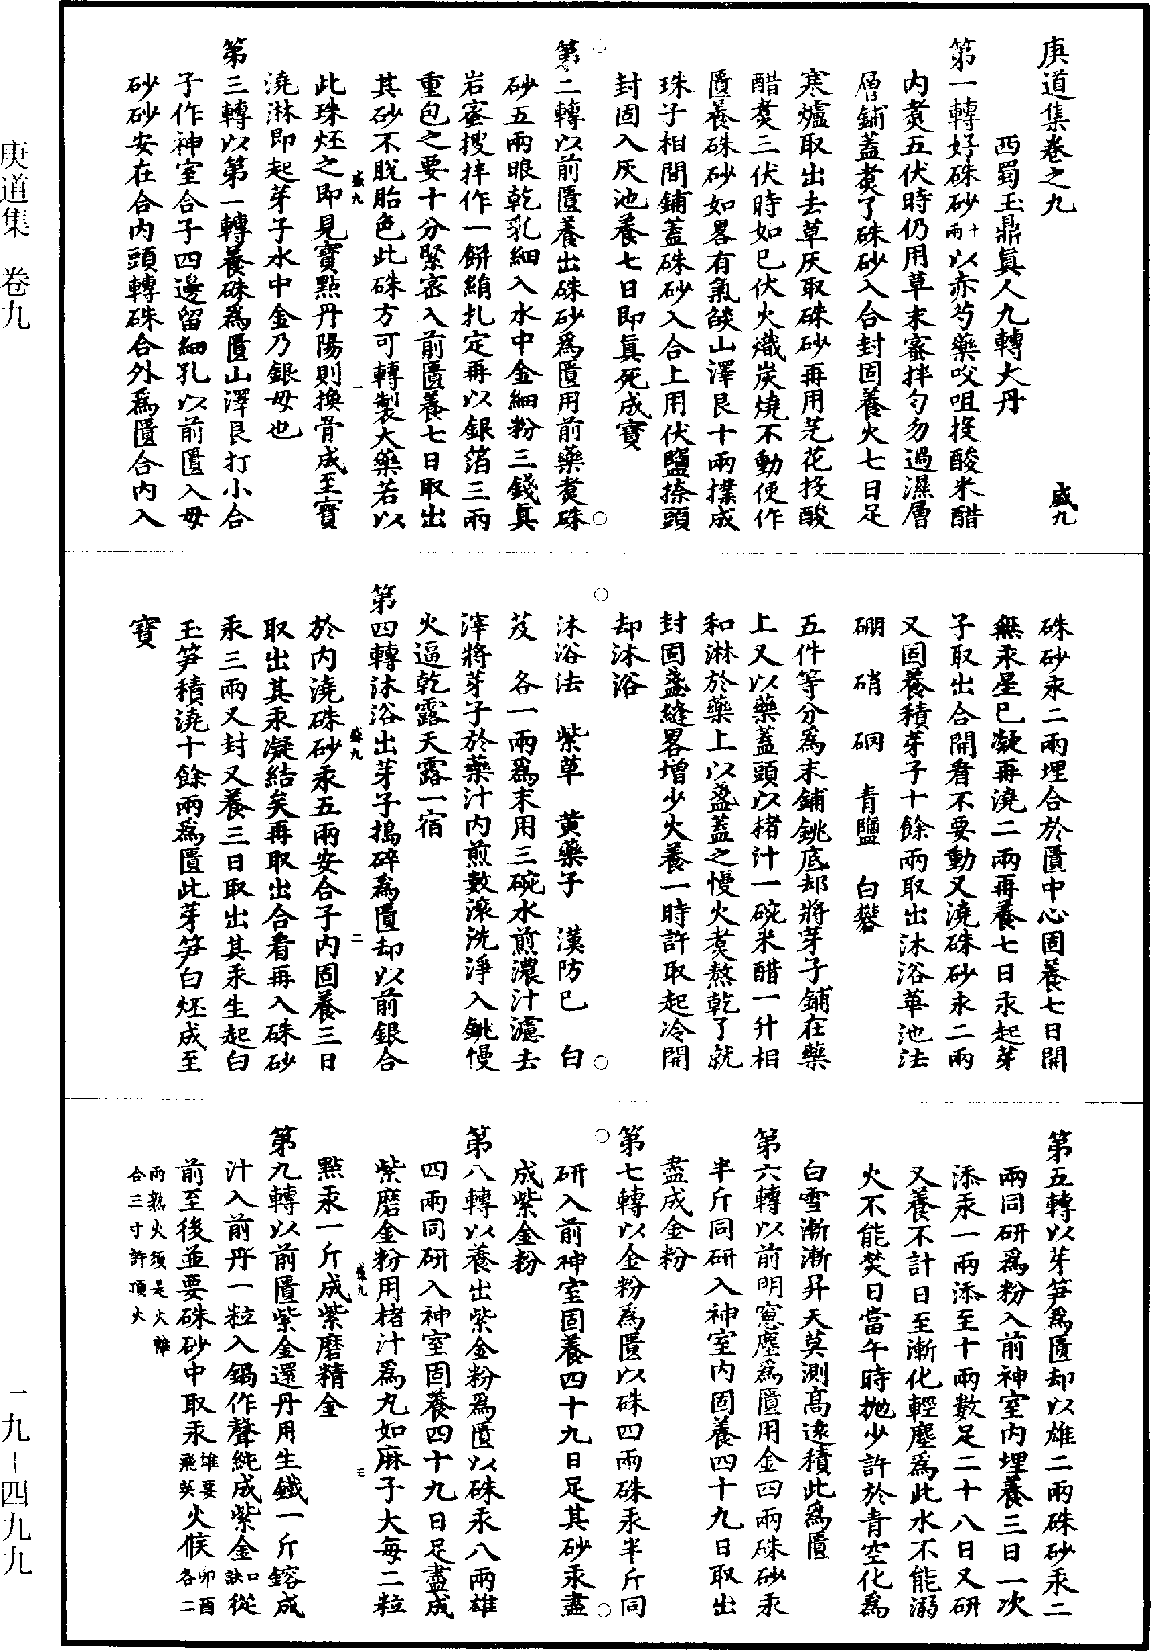 庚道集卷之九　盛九
西蜀玉鼎真人九轉大丹
第一轉好硃砂十兩以赤芍藥㕮咀投酸米醋
內煑五伏時仍用草末審拌勻勿過濕層
層鋪蓋煑了硃砂入合封固養火七日足
寒爐取出去草灰取硃砂再用芫花投酸
醋煑三伏時如已伏火熾炭燒不動便作
匱養硃砂如畧有氣燄山澤艮十兩擛成
珠子相間鋪蓋硃砂入合上用伏鹽捺頭
封固入灰池養七日即真死成寶
第二轉以前匱養出硃砂為匱用前藥煑硃
砂五兩眼乾乳細入水中金細粉三錢真
岩蜜搜拌作一餅絹扎定再以銀箔三兩
重包之要十分緊密入前匱養七日取出
其砂不脫胎色此硃方可轉製大藥若以
此珠烴之即見寶點丹陽則換骨成至寶
澆淋即起芽子水中金乃銀母也
第三轉以第一轉養硃為匱山澤艮打小合
子作神室合子四邊留細孔以前匱入母
砂砂安在合內頭轉硃合外為匱合內入
硃砂汞二兩埋合於匱中心固養七日開
無汞星已凝再澆二兩再養七日汞起芽
子取出合開看不要動又澆硃砂汞二兩
又固養積芽子十餘兩取出沐浴華池法
硼　硝　硇　青鹽　白礬
五件等分為末鋪銚底却將芽子鋪在藥
上又以藥蓋頭以楮汁一碗米醋一升相
和淋於藥上以盞蓋之慢火煑熬乾了就
封固盞縫畧增少火養一時許取起冷開
却沐浴
沐浴法　紫草　黃藥子　漢防已　白
芨　各一兩為末用三碗水煎濃汁濾去
滓將芽子於藥汁內煎數滾洗淨入銚慢
火逼乾露天露一宿
第四轉沐浴出芽子搗碎為匱却以前銀合
於內澆硃砂汞五兩安合子內固養三日
取出其汞凝結矣再取出合看再入硃砂
汞三兩又封又養三日取出其汞生起白
玉笋積澆十餘兩為匱此芽笋白烴成至
寶
第五轉以芽笋為匱却以雄二兩硃砂汞二
兩同研為粉入前神室內埋養三日一次
添汞一兩添至十兩數足二十八日又研
又養不計日至漸化輕塵為此水不能溺
火不能焚日當午時拋少許於青空化為
白雪漸漸昇天莫測高遠積此為匱
第六轉以前明窓塵為匱用金四兩硃砂汞
半斤同研入神室內固養四十九日取出
盡成金粉
第七轉以金粉為匱以硃四兩硃汞半斤同
研入前神室固養四十九日足其砂汞盡
成紫金粉
第八轉以養出紫金粉為匱以硃汞八兩雄
四兩同研入神室固養四十九日足盡成
紫磨金粉用楮汁為丸如麻子大每二粒
點汞一斤成紫磨精金
第九轉以前匱紫金還丹用生鐵一斤鎔成
汁入前丹一粒入鍋作聲純成紫金口訣從
前至後並要硃砂中取汞雄要飛英火候卯酉各二
兩熟火須是火離
合三寸許頂火
盛九　一
盛九　二
盛九　三
庚道集　卷九
一九－四九九